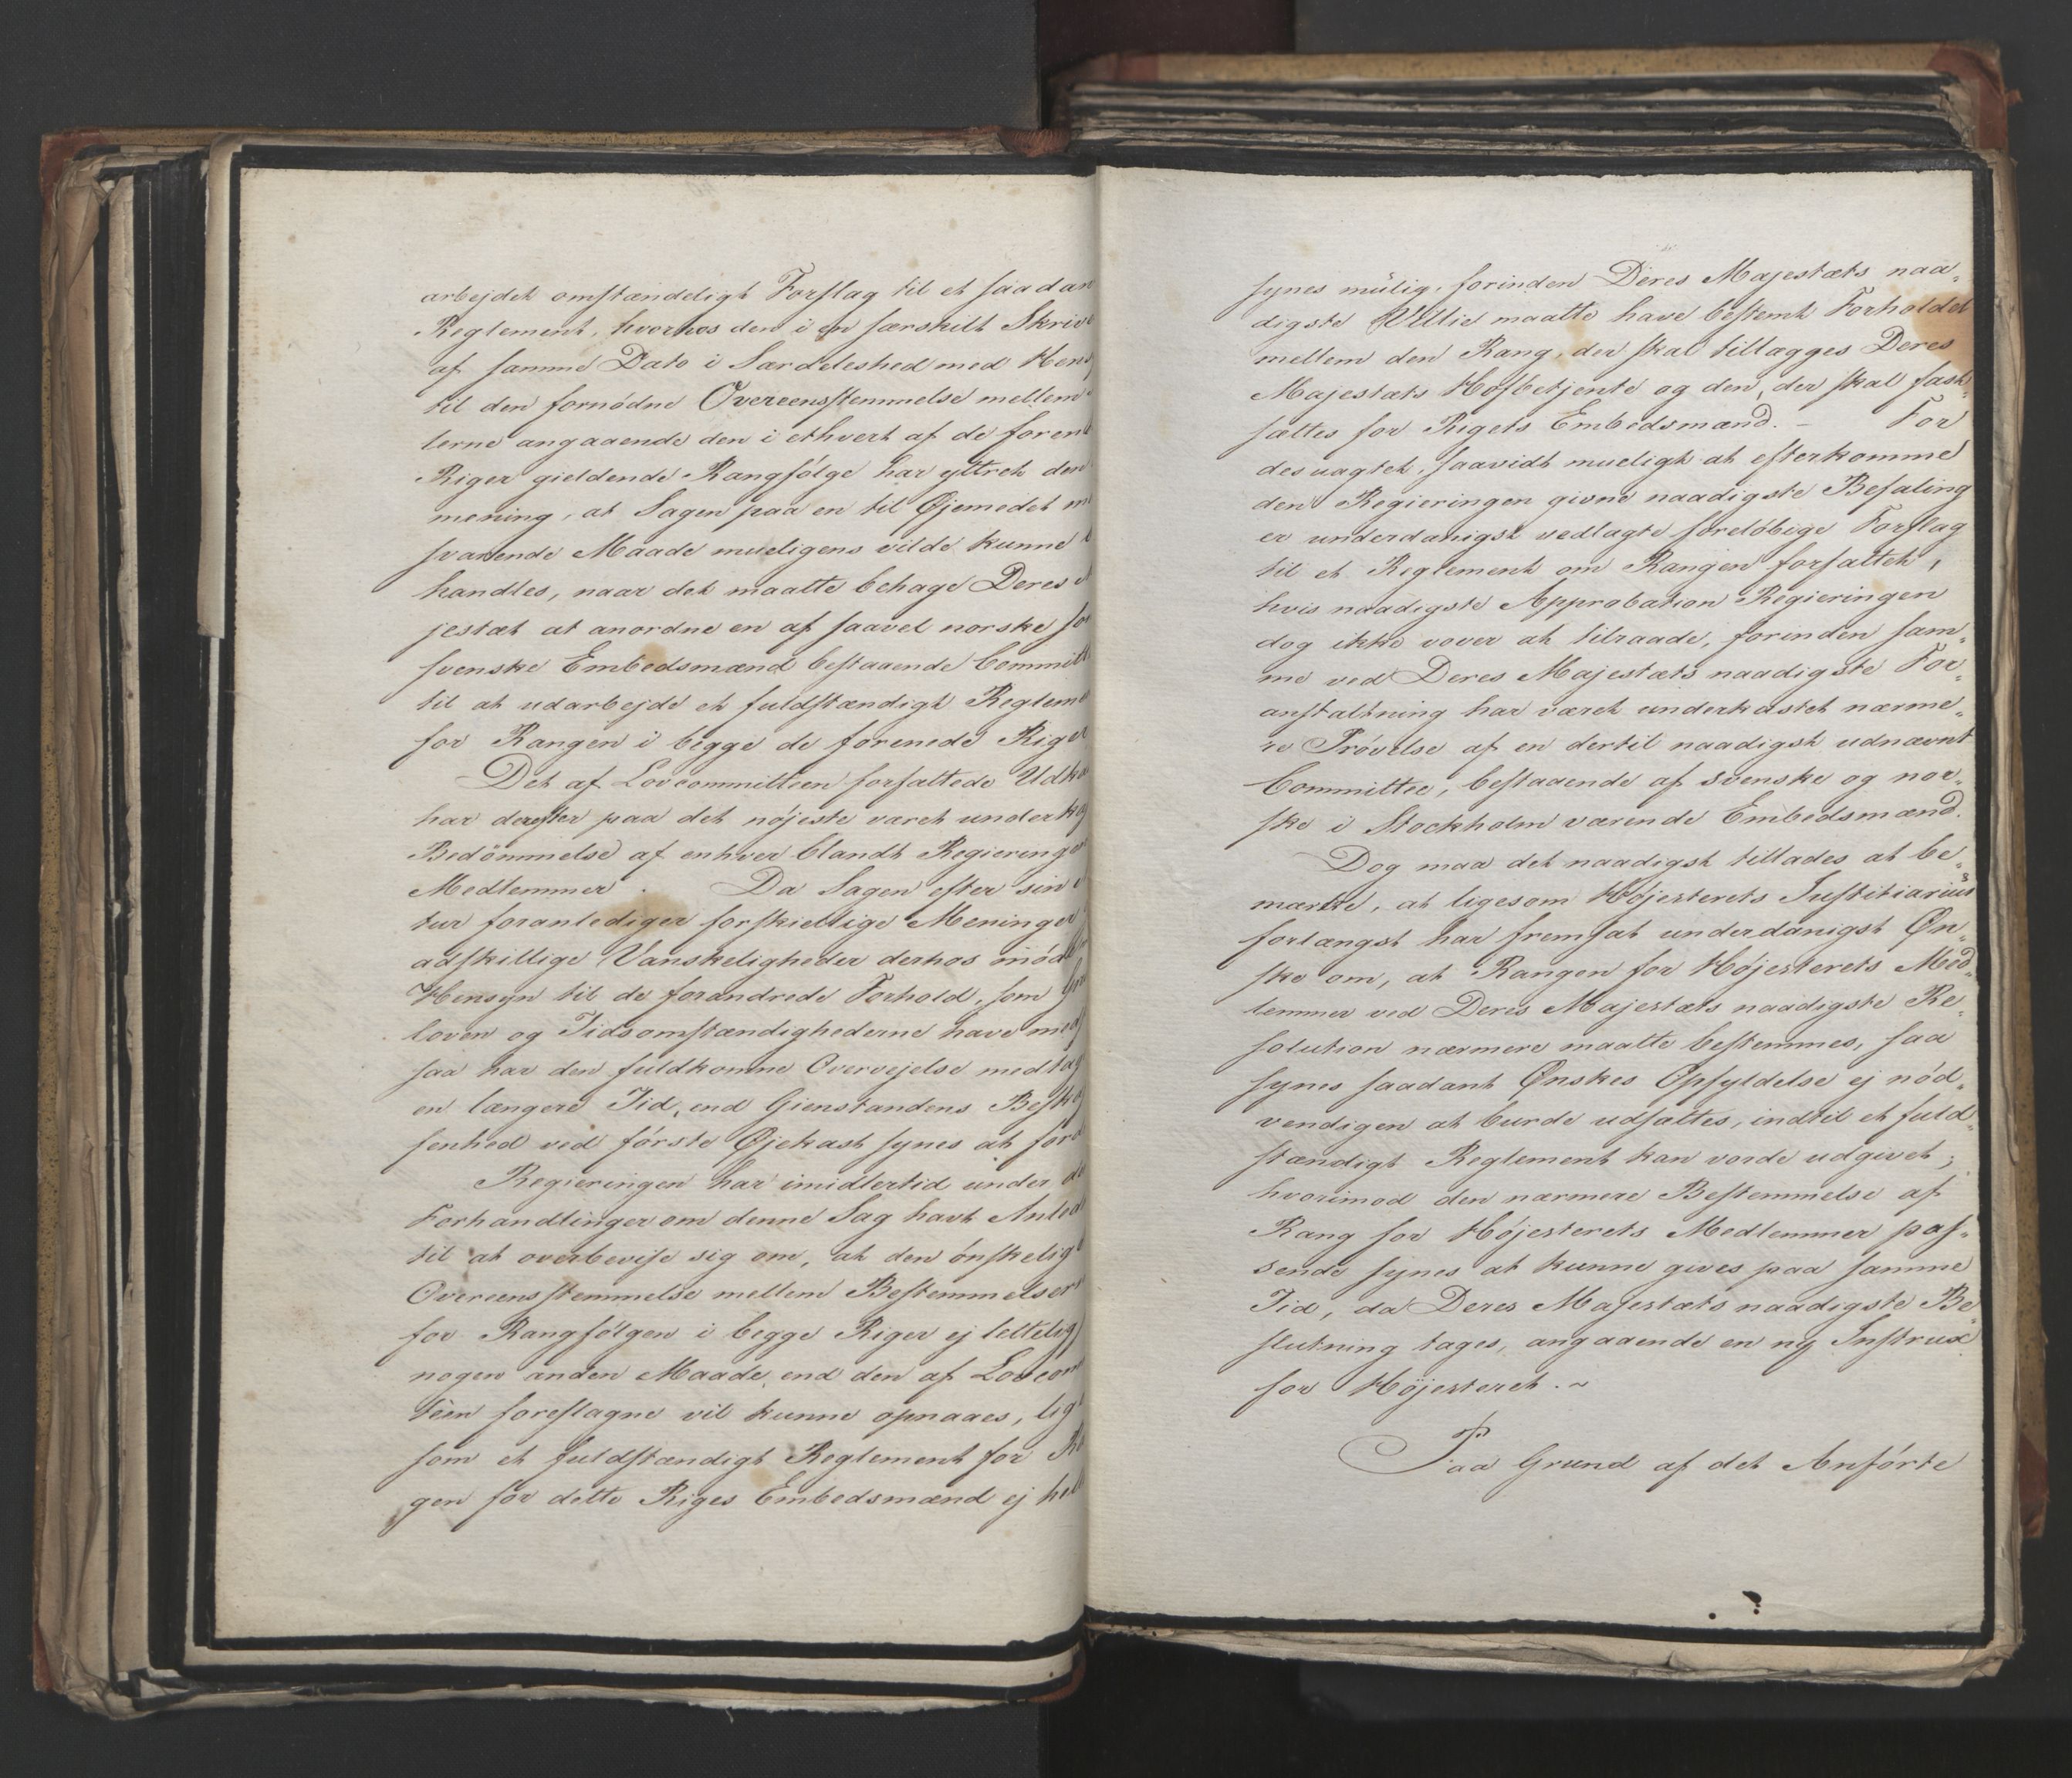 arbejdet omstændeligt Forslag til et saadan
Reglement, hvorhos den i en særskilt Skriv
af samme Dato i Særdeleshed med Hens
til den fornödne Overeensstemmelse mellem
lerne angaaende den i ethvert af de foren
Riger gieldende Rangfölge har yttret den
mening, at Sagen paa en til Øjemedet
svarende Maade mueligens vilde kunne
handles, naar det maatte behage Deres
jestæt at anordne en af saavel norske so
svenske Embedsmænd bestaaende Committ
til at udarbejde et fuldstændigt Regleme
for Rangen i begge de forenede Riger
Det af Lovcommitteen forfattede Udka
har derefter paa det nöjeste været underka
Bedömmelse af enhver blandt Regieringen
Medlemmer. Da Sagen efter sin
tur foranlediger forskiellige Meninger
adskillige Vanskeligheder derhos möde
Hensyn til de forandrede Forhold, som Gru
loven og Tidsomstændighederne have medf
saa har den fuldkomne Overvejelse medtag
en længere Tid, end Gienstandens Beska
fenhed ved förste Øjekast synes at ford
Regieringen har imidlertid under de
Forhandlinger om denne Sag havt Anled
til at overbevise sig om, at den önskelig
Overeensstemmelse mellem Bestemmelser
for Rangfölgen i begge Riger ej lettelig
nogen anden Maade, end den af Lovcom
teen foreslagne vil kunne opnaaes, lig
som et fuldstændigt Reglement for Ra
gen for dette Riges Embedsmænd ej hell
synes mülig, forinden Deres Majestæts naa-
digste Villie maatte have bestemt Forholdet
mellem den Rang, der skal tillægges Deres
Majestæts Hofbetjente og den, der skal fast-
sættes for Rigets Embedsmænd. – For
desuagtet, saavidt mueligt at efterkomme
den Regieringen givne naadigste Befaling
er underdanigst vedlagte forelöbige Forslag
til et Reglement om Rangen forfattet,
hvis naadigste Approbation Regieringen
dog ikke vover at tilraade, forinden sam-
me ved Deres Majestæts naadigste For-
anstaltning har været underkastet nærme-
re Prövelse af en dertil naadigst udnævnt
Committee, bestaaende af svenske og nor-
ske i Stockholm værende Embedsmænd.
Dog maa det naadigst tillades at be-
mærke, at ligesom Höjesterets Justitiarius
forlængst har fremsat underdanigst Øn-
ske om, at Rangen for Höjesterets Med-
lemmer ved Deres Majestæts naadigste Re-
solution nærmere maatte bestemmes, saa
synes saadant Ønskes Opfyldelse ej nöd-
vendigen at burde udsættes, indtil et fuld-
stændigt Reglement kan vorde udgivet;
hvorimod den nærmere Bestemmelse af
Rang for Höjesterets Medlemmer pas-
sende synes at kunne gives paa samme
Tid, da Deres Majestæts naadigste Be-
slutning tages, angaaende en ny Instrux
for Höjesteret. ~
Paa Grund af det Anförte